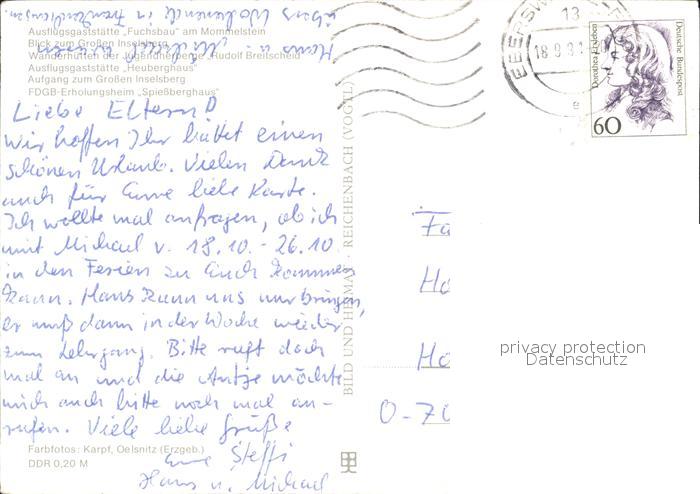 Ausflugsgaststätte „Fuchsbau" am Mommelstein
Blick zum Großen Inselsberg
Wanderhütten der Jugendherberge „Rudolf Breitscheid"
Ausflugsgaststätte „Heuberghaus"
Aufgang zum Großen Inselsberg
FDGB-Erholungsheim „Spießberghaus"
Liebe Eltern!
Wir hoffen Ihr hattet einen
schönen Urlaub. Vielen Dank
auch für Eure liebe Karte.
Ich wollte mal anfragen, ob ich
mit Michael v. 18.10. - 26.10
in den Ferien zu Euch kommen
kann. Hans kann uns nur bringen,
er muß dann in der Woche wieder
zum Lehrgang. Bitte ruft doch
mal an und die Antje möchte
mich auch bitte noch mal an-
rufen. Viele liebe Grüße
Eure Steffi
Hans u. Michael
übers Wochenende in
Hans u.
Farbfotos: Karpf, Oelsnitz (Erzgeb.)
DDR 0,20 M
BILD UND HEIMAT · REICHENBACH (VOGTL)
13
18.9.91
Dorothea Erxleben
Deutsche Bundespost
60
Fa
Ho
Ho
O-70
privacy protection
Datenschutz